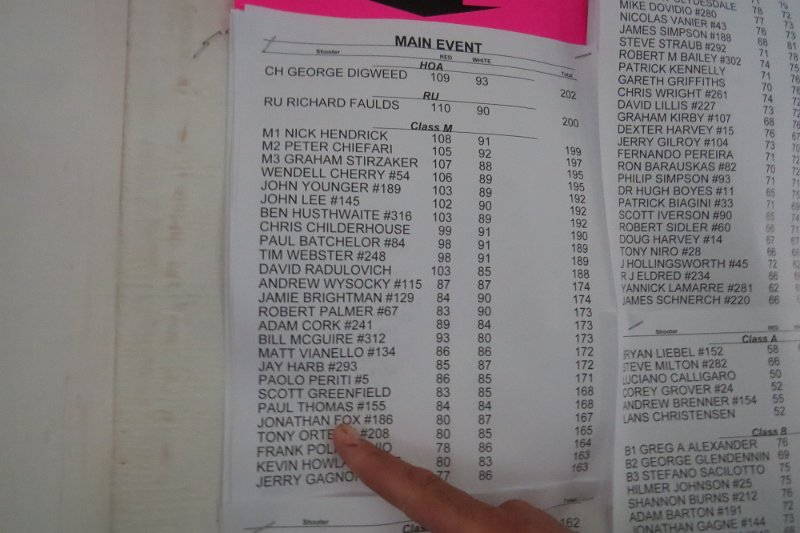 MAIN EVENT
Shooter RED WHITE Total
HOA
CH GEORGE DIGWEED 109 93 202
RU
RU RICHARD FAULDS 110 90 200
Class M
M1 NICK HENDRICK 108 91 199
M2 PETER CHIEFARI 105 92 197
M3 GRAHAM STIRZAKER 107 88 195
WENDELL CHERRY #54 106 89 195
JOHN YOUNGER #189 103 89 192
JOHN LEE #145 102 90 192
BEN HUSTHWAITE #316 103 89 192
CHRIS CHILDERHOUSE 99 91 190
PAUL BATCHELOR #84 98 91 189
TIM WEBSTER #248 98 91 189
DAVID RADULOVICH 103 85 188
ANDREW WYSOCKY #115 87 87 174
JAMIE BRIGHTMAN #129 84 90 174
ROBERT PALMER #67 83 90 173
ADAM CORK #241 89 84 173
BILL MCGUIRE #312 93 80 173
MATT VIANELLO #134 86 86 172
JAY HARB #293 85 87 172
PAOLO PERITI #5 86 85 171
SCOTT GREENFIELD 83 85 168
PAUL THOMAS #155 84 84 168
JONATHAN FOX #186 80 87 167
TONY #208 80 85 165
FRANK 78 86 164
KEVIN 80 83 163
JERRY GAGNO 77 86 163
Shooter Total
162
MIKE DOVIDIO #280 78
NICOLAS VANIER #43 77
JAMES SIMPSON #188 76
STEVE STRAUB #292 68
ROBERT M BAILEY #302 71
PATRICK KENNELLY 74
GARETH GRIFFITHS 71
CHRIS WRIGHT #261 70
DAVID LILLIS #227 74
GRAHAM KIRBY #107
DEXTER HARVEY #15
JERRY GILROY #104
FERNANDO PEREIRA
RON BARAUSKAS #82
PHILIP SIMPSON #93
DR HUGH BOYES #11
PATRICK BIAGINI #33
SCOTT IVERSON #90
ROBERT SIDLER #60
DOUG HARVEY #14
TONY NIRO #28
J HOLLINGSWORTH #45 72
R J ELDRED #234 66
YANNICK LAMARRE #281 62
JAMES SCHNERCH #220 66
Shooter RED
Class A
RYAN LIEBEL #152 58
STEVE MILTON #282 66
LUCIANO CALLIGARO 50
COREY GROVER #24 52
ANDREW BRENNER #154 55
LANS CHRISTENSEN 52
Class B
B1 GREG A ALEXANDER 76
B2 GEORGE GLENDENNIN 69
B3 STEFANO SACILOTTO 75
HILMER JOHNSON #25
SHANNON BURNS #212 76
ADAM BARTON #191 74
JONATHAN GAGNE #144 73